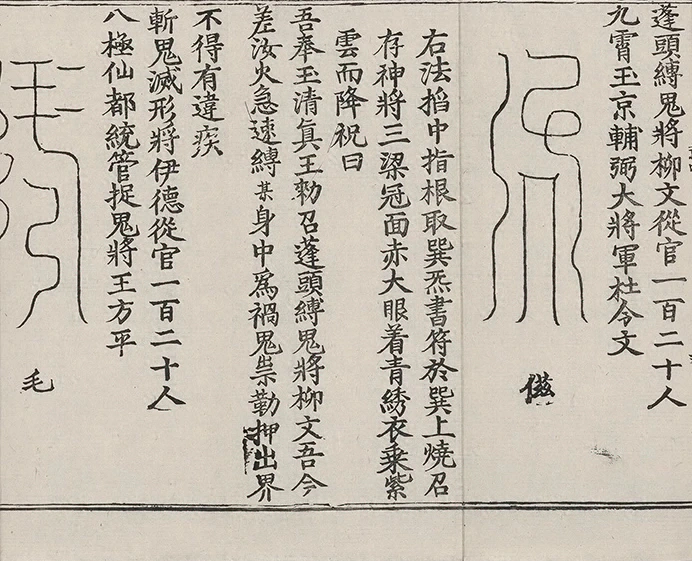 蓬頭縛鬼將柳文從官一百二十人
九霄玉京輔弼大將軍杜今文
儎
右法掐中指根取巽炁書符於巽上燒召
存神將三梁冠面赤大眼着青綉衣乗紫
雲而降祝曰
吾奉玉清真王勑召蓬頭縛鬼將柳文吾今
差汝火急速縛某身中爲禍鬼祟勒押出界
不得有違疾
斬鬼滅形將伊德從官一百二十人
八極仙都統管捉鬼將王方平
毛